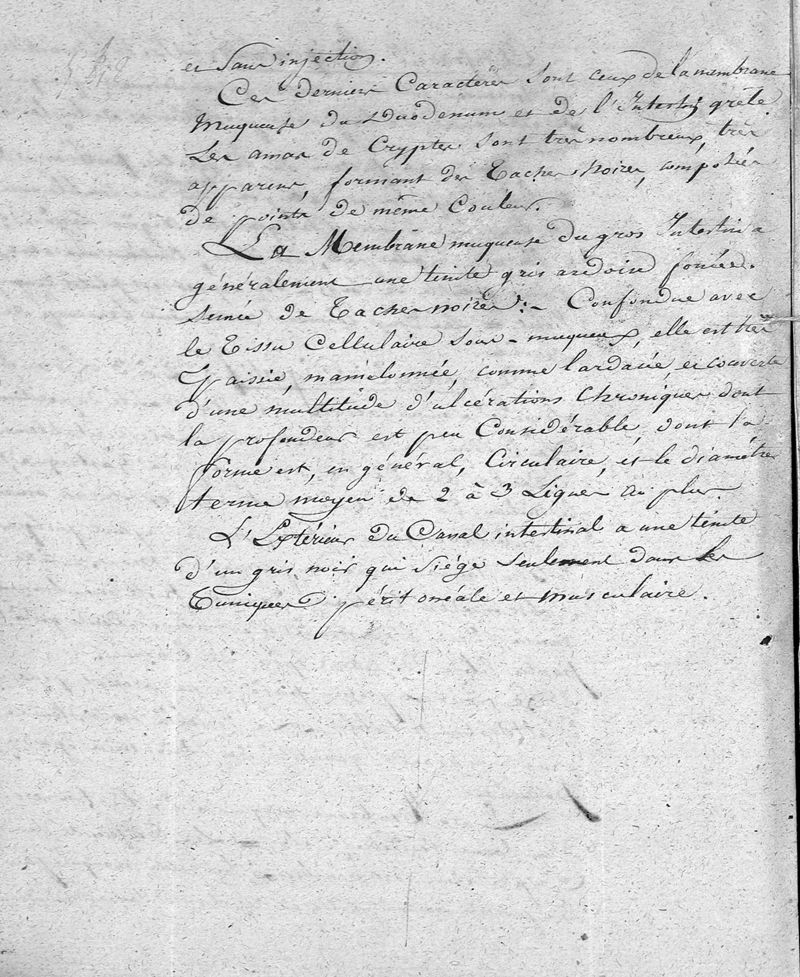 et sans injection.
Ces derniers Caractères sont ceux de la membrane
Muqueuse du duodenum et de l'Intestin grêle
Les amas de Cryptes sont très nombreux, très
apparens, formant des Taches Noires, composées
de points de même Couleur.
La Membrane muqueuse du gros Intestin a
généralement une teinte gris ardoisé foncée.
Semée de Taches noires. - Confondue avec
le Tissu Cellulaire sous-muqueux, elle est très
Epaissie, mamelonnée, comme lardacée et couverte
d'une multitude d'ulcérations Chroniques dont
la profondeur est peu Considérable, dont la
forme est, en général, Circulaire, et le diamètre
terme moyen de 2 à 3 Lignes au plus.
L'Extérieur du Canal intestinal a une teinte
d'un gris noir qui siége seulement dans les
Tuniques péritonéale et musculaire.